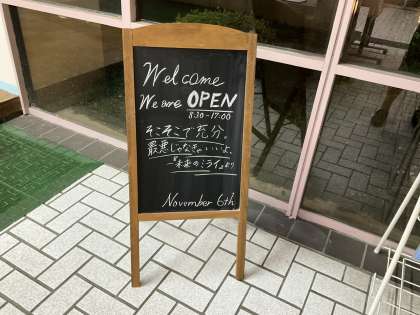 Welcome
We are OPEN
8:30-17:00
そこそこで充分。
最悪じゃなきゃいいよ。
『未来のミライ』より
November 6th